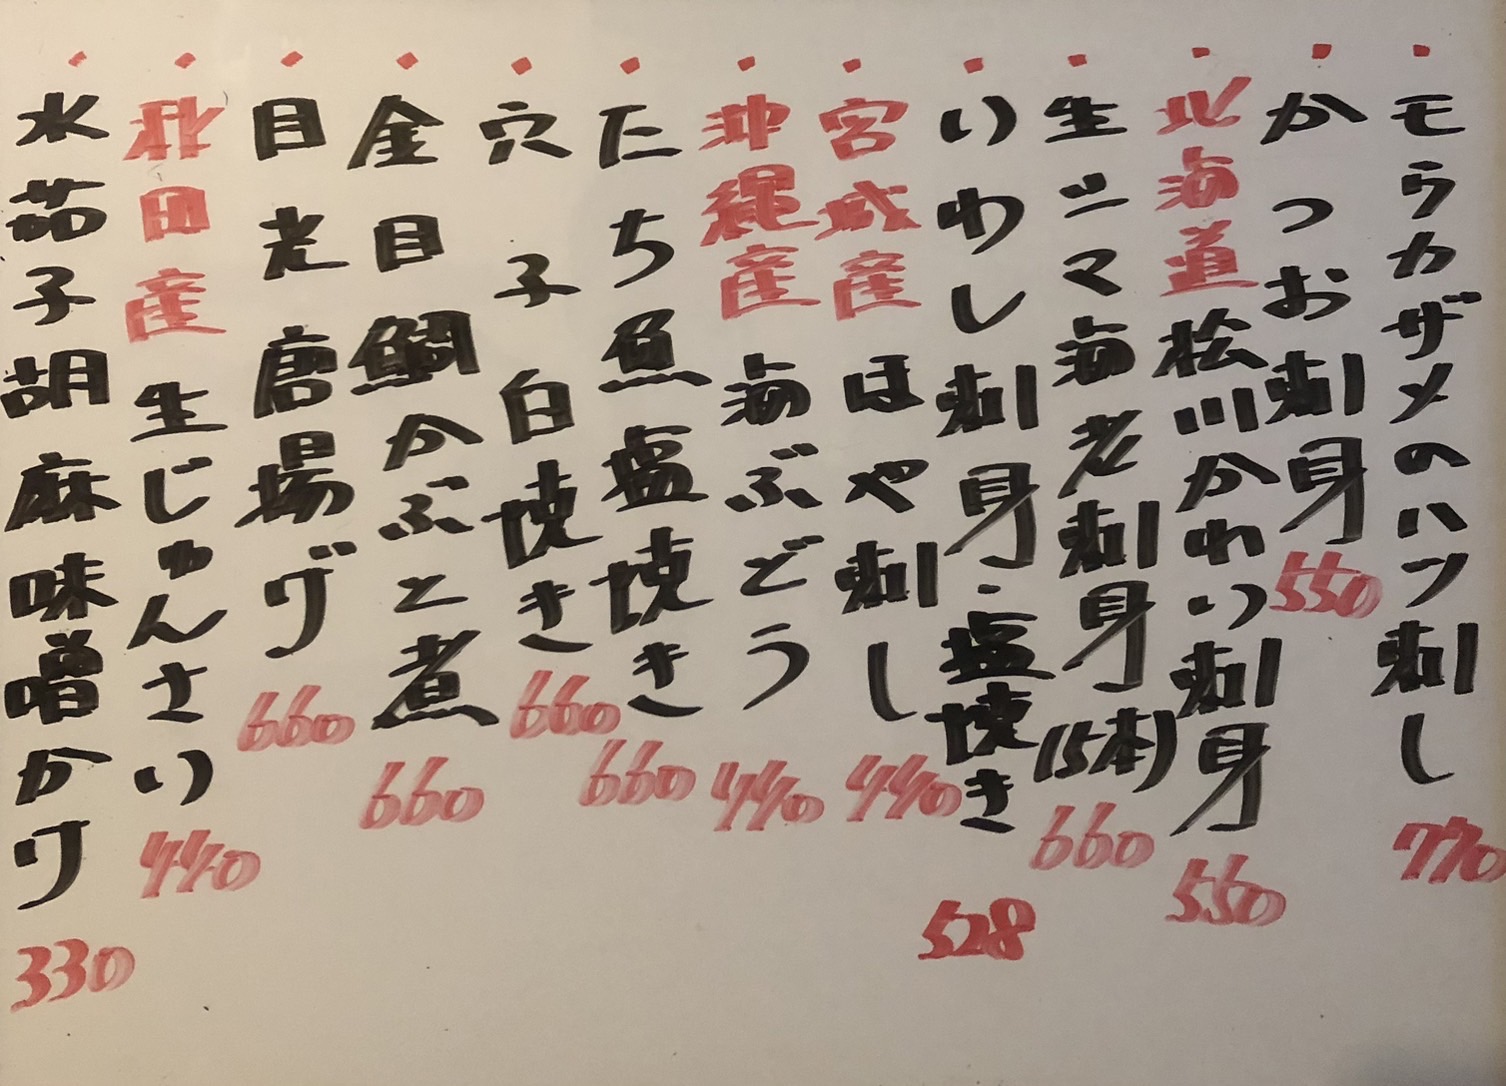 モウカザメのハツ刺し 770
かつお刺身 550
北海道松川かれい刺身 550
生シマ海老刺身(5本) 660
いわし刺身・塩焼き 528
宮城産ほや刺し 440
沖縄産海ぶどう 440
たち魚塩焼き 660
穴子白焼き 660
金目鯛かぶと煮 660
目光唐揚げ 660
秋田産生じゅんさい 440
水茄子胡麻味噌かけ 330